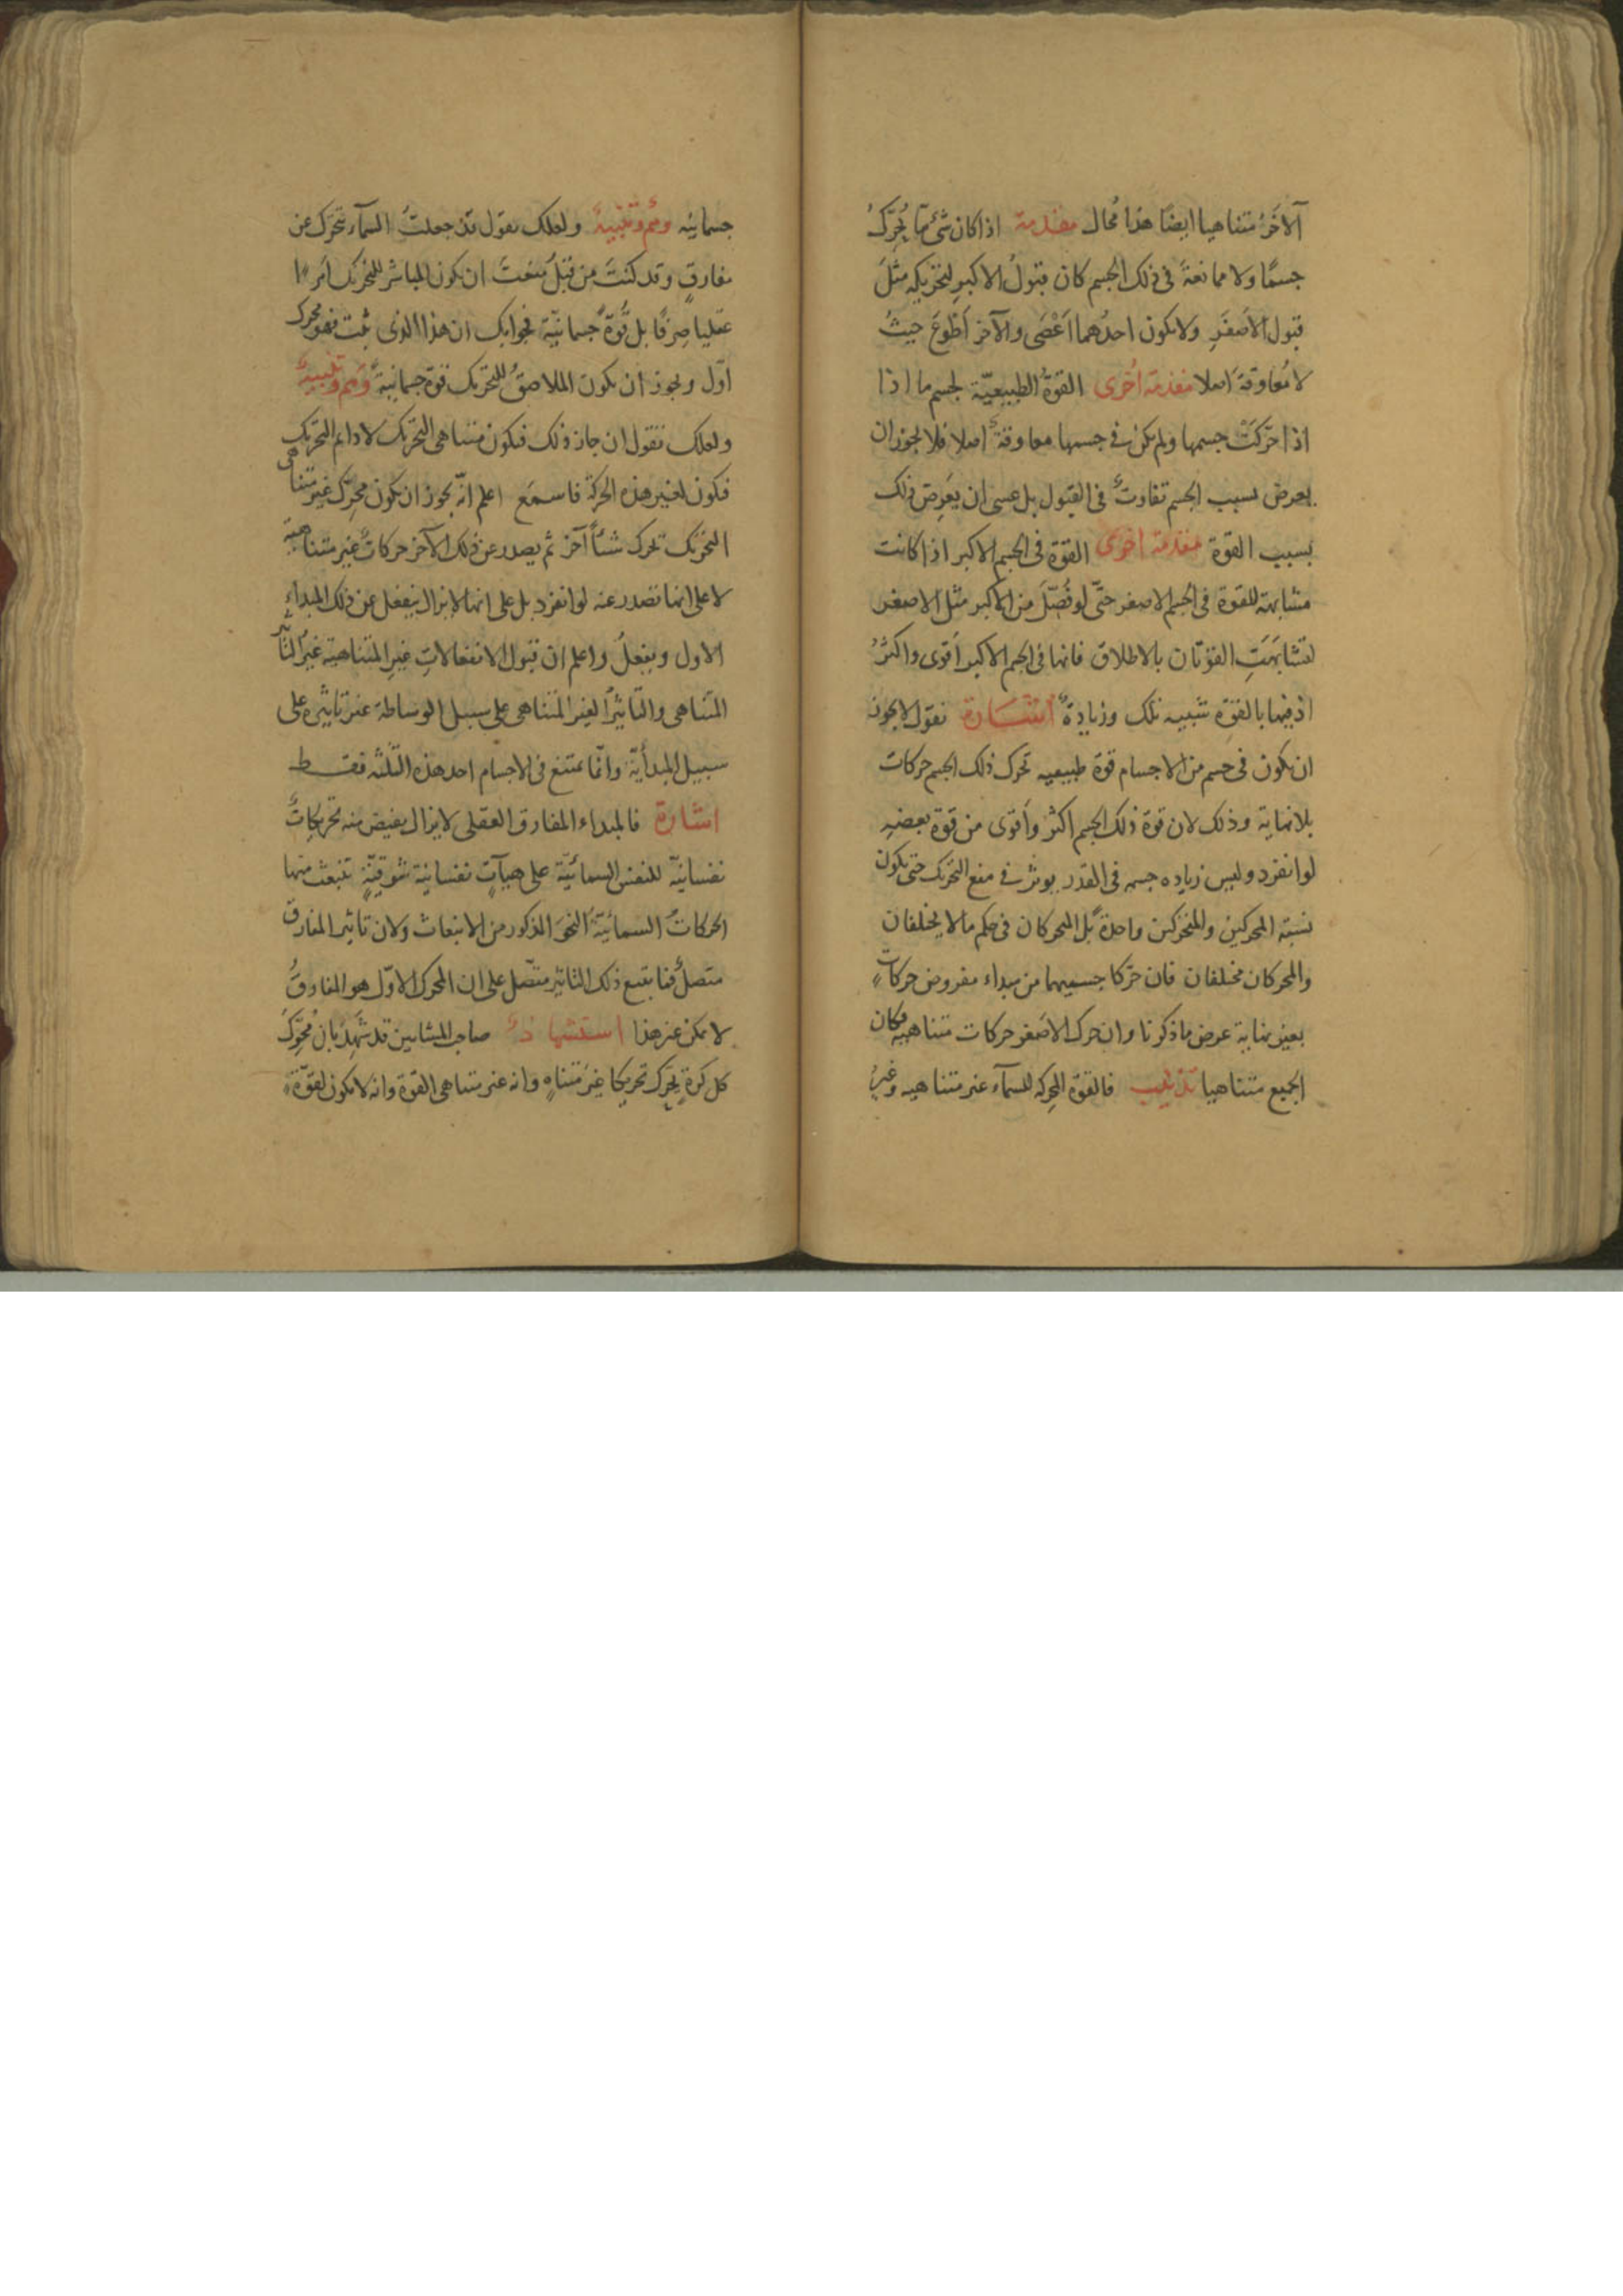 الآخَرُ متناهيا ايضًا هذا مُحال مقدمة اذا كان شئ ما يُحَرِّكُ
جسمًا ولا ممانعةَ فى ذلك الجسم كان قبولُ الاكبرِ لتحريكه مثلَ
قبول الاَصْغَرِ ولا يكون احدُهما اَعْصَى والآخر اَطْوَعَ حيثُ
لا مُعاوقةَ اصلا مقدمة اُخرى القوّةُ الطبيعيّة لجسم ما اذا
اذا حَرَّكَتْ جسمها ولم يكن فى جسمها معاوقةٌ اصلا فلا يجوز ان
يعرض بسبب الجسم تفاوتٌ فى القبول بل عسى ان يَعْرِضَ ذلك
بسبب القوة مقدمة اخرى القوّة فى الجسم الاكبر اذا كانت
مشابهة للقوة فى الجسم الاصغر حتّى لو فُصِّلَ من الاكبر مثل الاصغر
لتشابَهَتِ القوّتان بالاطلاق فانها فى الجسم الاكبر اَقوى واكثرُ
اذ فيها بالقوّة شبيه تلك وزيادةٌ اشارة نقول لا يجوز
ان يكون فى جسم من الاجسام قوة طبيعيه تحرك ذلك الجسم حركات
بلا نهاية وذلك لان قوة ذلك الجسم اكثر واَقوى من قوة بعضِهِ
لو انفرد وليس زياده جسمه فى القدر يوثر فى منع التحريك حتى يكون
نسبة المحركين والمتحركين واحدةً بل المتحركان فى حكم ما لا يختلفان
والمحركان مختلفان فان حرّكا جسميهما من مبداء مفروض حركاتٍ
بغير نهاية عرض ما ذكرنا وان حرك الاصغر حركات متناهيه فكان
الجميع متناهيا تذنيب فالقوّة المحركه للسمآء غير متناهيه وغيرُ
جسمانيه وهمٌ وتنبيهٌ ولعلك تقول قد جعلتَ السمآء تتحرّك عن
مفارقٍ وقد كنتَ من قبلُ منعتَ ان يكون المباشر للتحريك امرًا
عقليا صِرفًا بل قُوّةً جسمانيّة فجوابك ان هذا الذى ثبت فهو محرك
اوّل ويجوز ان يكون الملاصقُ للتحريك قوّة جسمانيّةً وَهم وتنبيهٌ
ولعلك تقول ان جاز ذلك فيكون متناهى التحريك لا دايم التحريك
فيكون لغير هذه الحركة فاسمَع اعلم انّه يجوز ان يكون محرِّك غيرُ متناهى
التحريك يحرك شئاً آخر ثم يصدر عن ذلك الآخر حركاتٌ غير متناهيةٍ
لا على انها تصدر عنه لو انفرد بل على انها لا يزال ينفعل عن ذلك المبداء
الاول ويفعلُ واعلم ان قبول الانفعالاتِ غيرِ المتناهية غيرُ التأثير
المتناهى والتأثيرُ الغير المتناهى على سبيل الوساطة غير تاثيره على
سبيل المبدأيّة وانّما يمتنع فى الاجسام احد هذه الثلثه فقط
اشارة فالمبداء المفارق العقلى لا يزال يفيض منه تحريكاتٌ
نفسانيّة للنفس السمائيّة على هيآتٍ نفسانية شوقيّةٍ تنبعث منها
الحركاتُ السمائيّةُ النحوَ المذكور من الانبعاث ولان تاثير المفارق
متصلٌ فما يتبع ذلك التاثير متصّل على ان المحرك الاوّل هو المفارقُ
لا يمكن غير هذا استشهادٌ صاحب المشايين قد شَهِدَ بان مُحرِّكَ
كل كرةٍ يحرِّك تحريكا غيرَ متناهٍ وانه غير متناهى القوة وانه لا يكون لقوّة